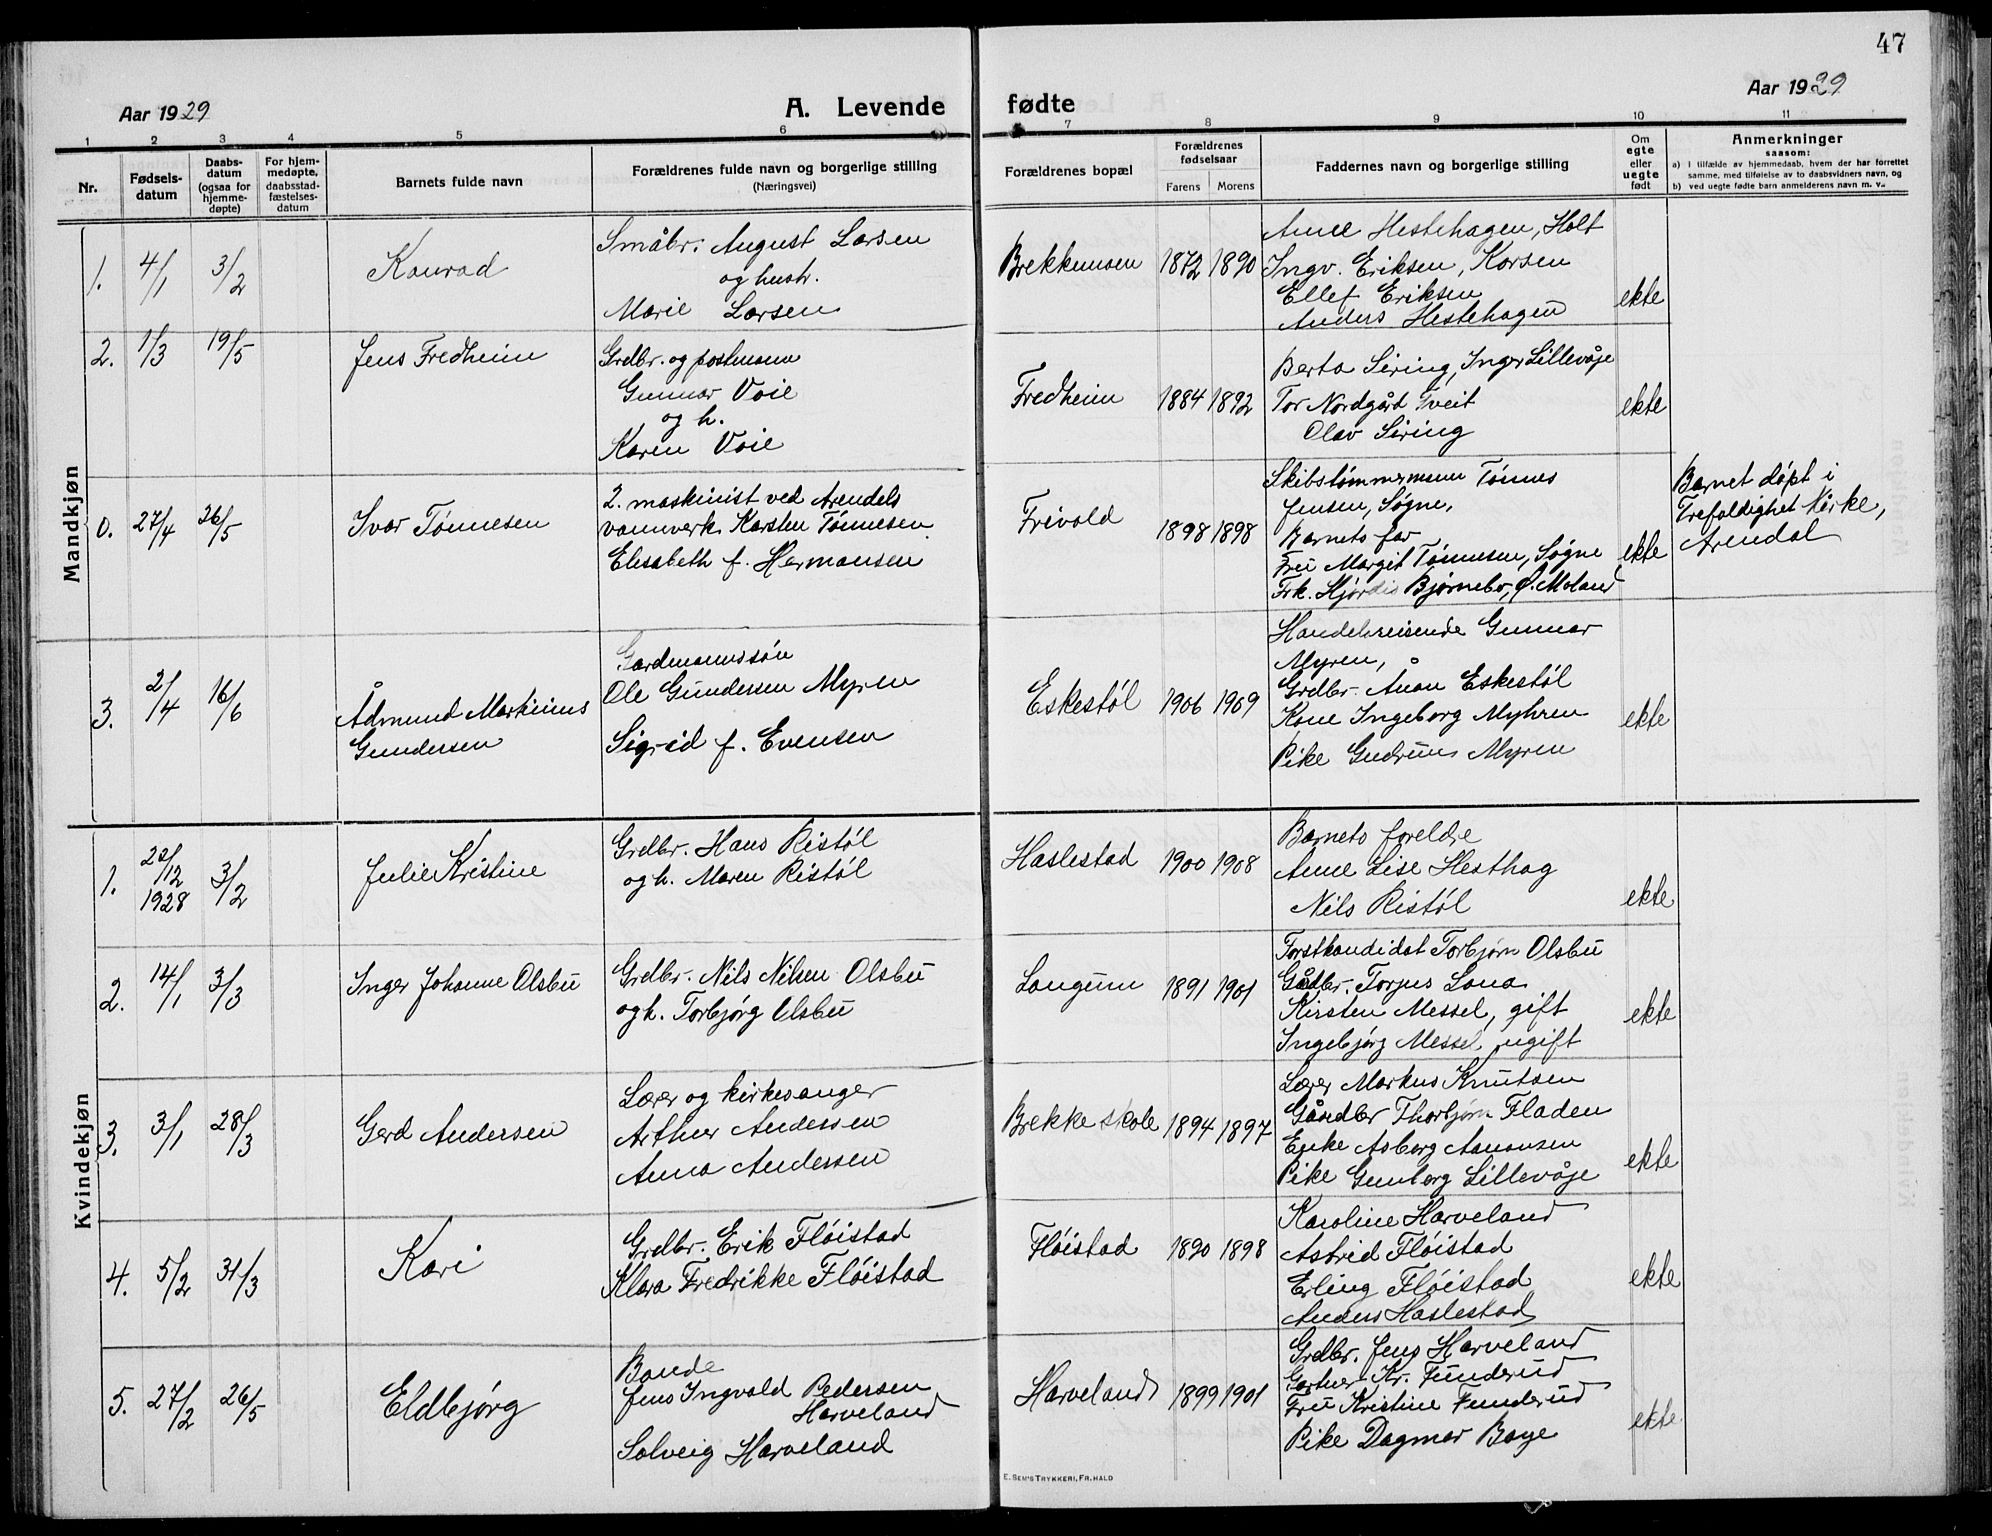 47
Aar 1929
A. Levende fødte
Aar 1929
1 2 3 4 5 6 7 8 9 10 11
Nr.
Fødsels-
datum
Daabs-
datum
(ogsaa for
hjemme-
døpte)
For hjem-
medøpte,
daabsstad-
fæstelses-
datum
Barnets fulde navn
Forældrenes fulde navn og borgerlige stilling
(Næringsvei)
Forældrenes bopæl
Forældrenes
fødselsaar
Farens Morens
Faddernes navn og borgerlige stilling
Om
egte
eller
uegte
født
Anmerkninger
saasom:
a) i tilfælde av hjemmedaab, hvem der har forrettet
samme, med tilføielse av to daabsvidners navn, og
b) ved uegte fødte barn anmelderens navn m. v..
Mandkjøn
1. 4/1 3/2 Konrad
Småbr. August Larsen
og hustr.
Marie Larsen
Brekkemoen 1872 1890
Anne Hestehagen, Holt
Ingv. Eriksen, Karsen
Ellef Eriksen
Anders Hestehagen
ekte
2. 1/3 19/5 Jens Fredheim
Grdbr. og postmann
Gunnar Voie
og h.
Karen Voie
Fredheim 1884 1892
Berta Siring, Inger Lillevåje
Tor Nordgård Tveit
Olav Siring
ekte
0. 27/4 26/5 Ivar Tønnesen
2. maskinist ved Arendals
vannverk Karsten Tønnesen
Elisabeth f. Hermansen
Frivold 1898 1898
Skibstømmermann Tønnes
Jensen, Søgne,
Barnets far
Fru Margit Tønnesen, Søgne
Frk. Hjørdis Bjørnebo, Ø. Moland
ekte
Barnet døpt i
Trefoldighet kirke,
Arendal
3. 2/4 16/6 Ådmund Markinius
Gundersen
Gardmannssøn
Ole Gundersen Myren
Sigrid f. Evensen
Eskestøl 1906 1909
Handelsreisende Gunnar
Myren,
Grdbr. Ånon Eskestøl
Kone Ingeborg Myhren
Pike Gudrun Myren
ekte
Kvindekjøn
1. 22/12
1928 3/2 Julie Kristine
Grdbr. Hans Ristøl
og h. Maren Ristøl
Haslestad 1900 1908
Barnets foreldre
Anne Lise Hesthag
Nils Ristøl
ekte
2. 14/1 3/3 Inger Johanne Olsbu
Grdbr. Nils Nilsen Olsbu
og h. Torbjørg Olsbu
Longum 1891 1901
Forstkandidat Torbjørn Olsbu
Gådbr. Torjus Lona
Kirsten Messel, gift
Ingebjørg Messel, ugift
ekte
3. 3/1 28/3 Gerd Andersen
Lærer og kirkesanger
Arthur Andersen
Anna Andersen
Brekke skole 1894 1897
Lærer Markus Knutsen
Gårdbr Thorbjørn Fladen
Enke Asborg Aanonsen
Pike Gunborg Lillevåje
ekte
4. 5/2 31/3 Kari
Grdbr. Erik Fløistad
Klara Fredrikke Fløistad
Fløistad 1890 1898
Karoline Harveland
Astrid Fløistad
Erling Fløistad
Anders Haslestad
ekte
5. 27/2 26/5 Eldbjørg
Bonde
Jens Ingvald Pedersen
Harveland
Solveig Harveland
Harveland 1899 1901
Grdbr. Jens Harveland
Gartner Kr. Funderud
Fru Kristine Funderud
Pike Dagmar Boye
ekte
E. SEM'S TRYKKERI, FR. HALD